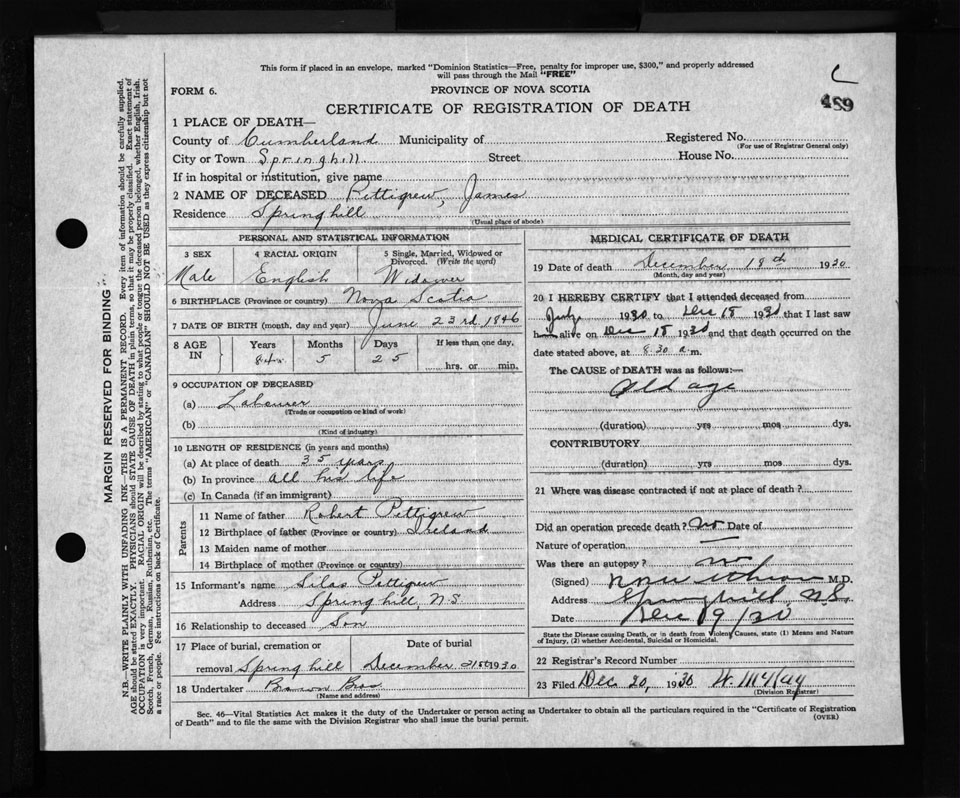 This form if placed in an envelope, marked "Dominion Statistics—Free, penalty for improper use, $300," and properly addressed
will pass through the Mail "FREE"
FORM 6.
PROVINCE OF NOVA SCOTIA
CERTIFICATE OF REGISTRATION OF DEATH
489
1 PLACE OF DEATH—
County of Cumberland Municipality of Registered No.
(For use of Registrar General only)
City or Town Springhill Street House No.
If in hospital or institution, give name
2 NAME OF DECEASED Pettigrew, James
Residence Springhill
(Usual place of abode)
PERSONAL AND STATISTICAL INFORMATION
3 SEX 4 RACIAL ORIGIN 5 Single, Married, Widowed or Divorced. (Write the word)
Male English Widower
6 BIRTHPLACE (Province or country) Nova Scotia
7 DATE OF BIRTH (month, day and year) June 23rd 1846
8 AGE IN Years Months Days If less than one day,
84 5 25 hrs. or min.
9 OCCUPATION OF DECEASED
(a) Labourer
(Trade or occupation or kind of work)
(b)
(Kind of industry)
10 LENGTH OF RESIDENCE (in years and months)
(a) At place of death 35 years
(b) In province all his life
(c) In Canada (if an immigrant)
Parents
11 Name of father Robert Pettigrew
12 Birthplace of father (Province or country) Ireland
13 Maiden name of mother
14 Birthplace of mother (Province or country)
15 Informant's name Silas Pettigrew
Address Springhill, N.S.
16 Relationship to deceased Son
17 Place of burial, cremation or Date of burial
removal Springhill December 21st 1930
18 Undertaker Brown Bros
(Name and address)
MEDICAL CERTIFICATE OF DEATH
19 Date of death December 18th 1930
(Month, day and year)
20 I HEREBY CERTIFY that I attended deceased from
July 1930 to Dec 18 1930 that I last saw
h alive on Dec 18 1930 and that death occurred on
date stated above, at 8.30 a.m.
The CAUSE of DEATH was as follows:—
Old age
(duration) yrs mos dys.
CONTRIBUTORY
(duration) yrs mos dys.
21 Where was disease contracted if not at place of death?
Did an operation precede death? No Date of
Nature of operation —
Was there an autopsy? no
(Signed) M.D.
Address Springhill, N.S.
Date Dec 19/30
State the Disease causing Death, or in death from Violent Causes, state (1) Means and Nature
of Injury, (2) whether Accidental, Suicidal or Homicidal.
22 Registrar's Record Number
23 Filed Dec 20, 1930 W. McKay
(Division Registrar)
Sec. 46—Vital Statistics Act makes it the duty of the Undertaker or person acting as Undertaker to obtain all the particulars required in the "Certificate of Registration
of Death" and to file the same with the Division Registrar who shall issue the burial permit.
(OVER)
MARGIN RESERVED FOR BINDING
N.B.—WRITE PLAINLY WITH UNFADING INK—THIS IS A PERMANENT RECORD. Every item of information should be carefully supplied.
AGE should be stated EXACTLY. PHYSICIANS should STATE CAUSE OF DEATH in plain terms, so that it may be properly classified. Exact statement of
OCCUPATION is very important. RACIAL ORIGIN will be described by stating to what people or tongue the deceased person belonged, whether English, Irish,
Scotch, French, German, Russian, Ruthenian, etc. The terms "AMERICAN" or "CANADIAN" SHOULD NOT BE USED as they express citizenship but not
a race or people. See instructions on back of Certificate.